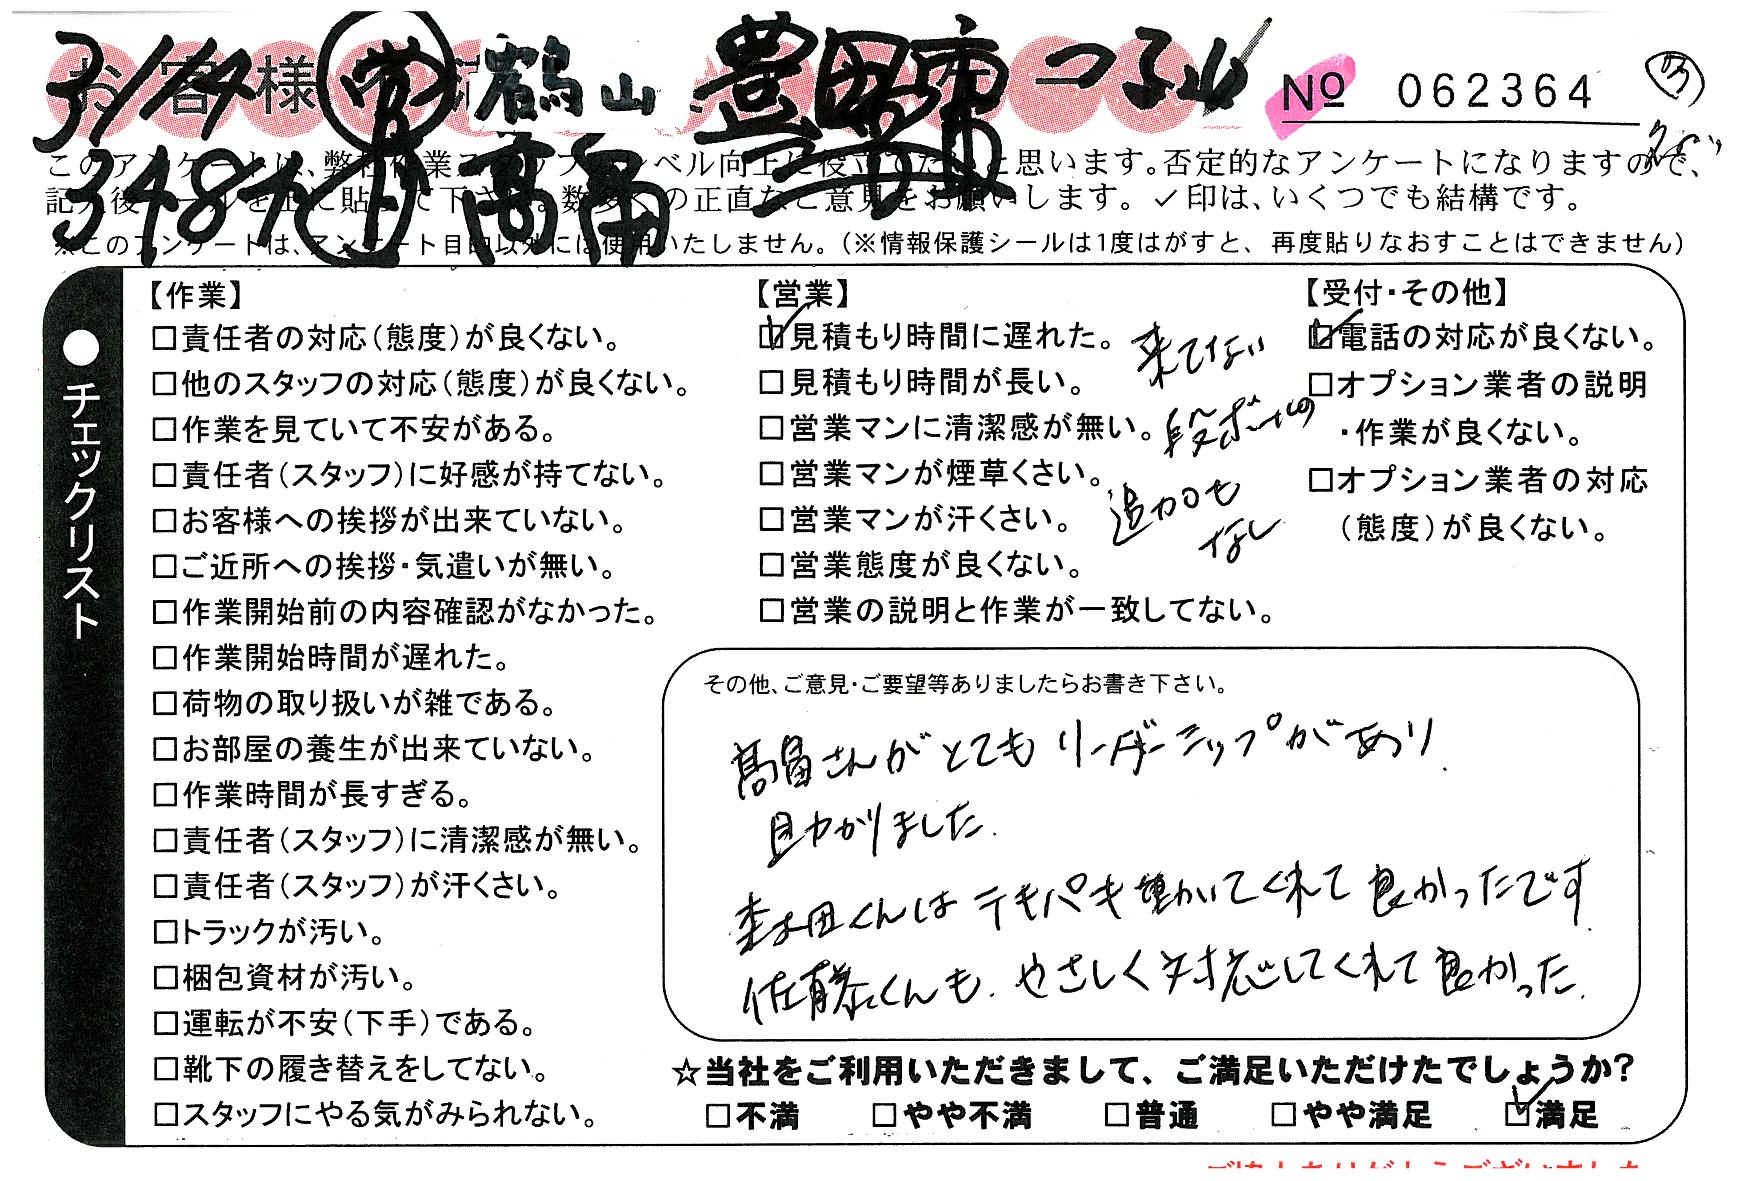 3/24 営 鶴山 豊田市 つる
お客様
No 062364
このアンケートは、弊社作業スタッフのレベル向上に役立てたいと思います。否定的なアンケートになりますので、
348 高畠
記入後シールを上に貼って下さい。数多くの正直なご意見をお願いします。✓印は、いくつでも結構です。
※このアンケートは、アンケート目的以外には使用いたしません。(※情報保護シールは1度はがすと、再度貼りなおすことはできません)
●チェックリスト
【作業】
□責任者の対応(態度)が良くない。
□他のスタッフの対応(態度)が良くない。
□作業を見ていて不安がある。
□責任者(スタッフ)に好感が持てない。
□お客様への挨拶が出来ていない。
□ご近所への挨拶・気遣いが無い。
□作業開始前の内容確認がなかった。
□作業開始時間が遅れた。
□荷物の取り扱いが雑である。
□お部屋の養生が出来ていない。
□作業時間が長すぎる。
□責任者(スタッフ)に清潔感が無い。
□責任者(スタッフ)が汗くさい。
□トラックが汚い。
□梱包資材が汚い。
□運転が不安(下手)である。
□靴下の履き替えをしてない。
□スタッフにやる気がみられない。
【営業】
☑見積もり時間に遅れた。
□見積もり時間が長い。
□営業マンに清潔感が無い。
□営業マンが煙草くさい。
□営業マンが汗くさい。
□営業態度が良くない。
□営業の説明と作業が一致してない。
来てない
段ボールの
追加も
なし
【受付・その他】
☑電話の対応が良くない。
□オプション業者の説明
・作業が良くない。
□オプション業者の対応
(態度)が良くない。
その他、ご意見・ご要望等ありましたらお書き下さい。
髙畠さんがとてもリーダーシップがあり
助かりました.
森田くんはテキパキ動いてくれて良かったです.
佐藤くんも.やさしく対応してくれて良かった.
☆当社をご利用いただきまして、ご満足いただけたでしょうか?
□不満 □やや不満 □普通 □やや満足 ☑満足